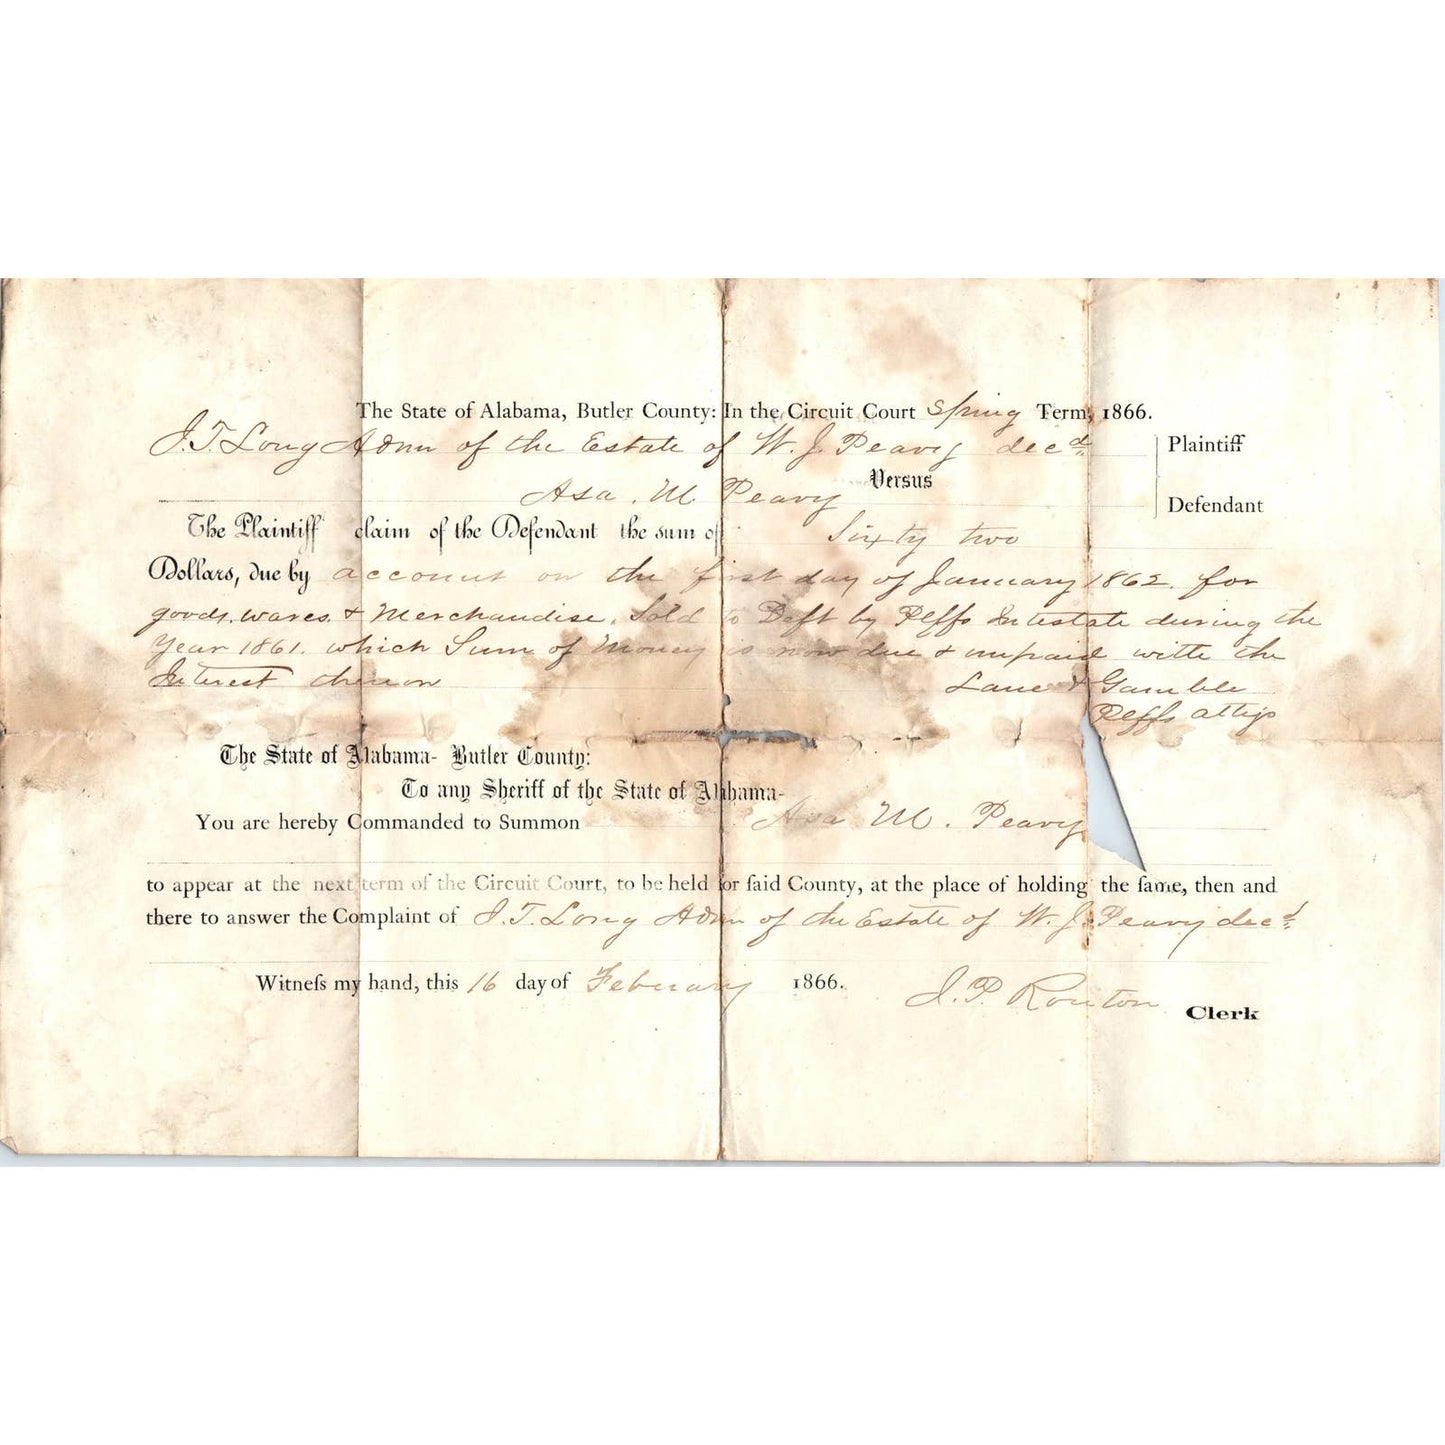 The State of Alabama, Butler County: In the Circuit Court Spring Term, 1866.
J. T. Long Admr of the Estate of W. J. Peavy decd Plaintiff
Versus
Asa. M. Peavy Defendant
The Plaintiff claim of the Defendant the sum of Sixty two
Dollars, due by account on the first day of January 1862. for
goods. wares. & Merchandise. Sold to Deft by Plffs Intestate during the
Year 1861. which Sum of Money is now due & unpaid with the
Interest thereon Lane & Gamble
Plffs attys
The State of Alabama- Butler County:
To any Sheriff of the State of Alabama-
You are hereby Commanded to Summon Asa M. Peavy
to appear at the next term of the Circuit Court, to be held for ſaid County, at the place of holding the ſame, then and
there to answer the Complaint of J. T. Long Admr of the Estate of W. J. Peavy decd
Witneſs my hand, this 16 day of February 1866. J. P. Routon Clerk